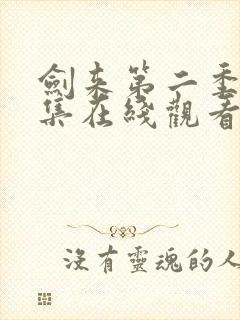 劍来第二季
集在綫觀看
沒有靈魂的人